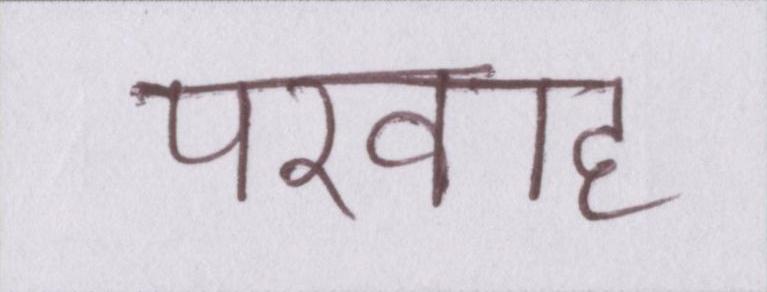 परवाह